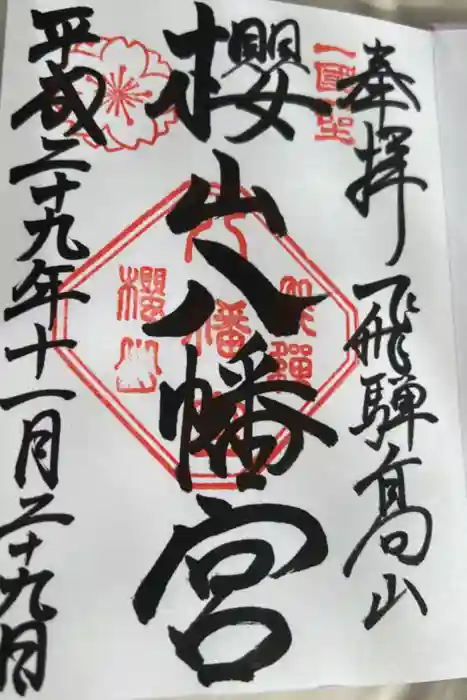 奉拝 飛騨高山
櫻山八幡宮
平成二十九年十一月二十九日
飛驒
八幡宮
櫻山